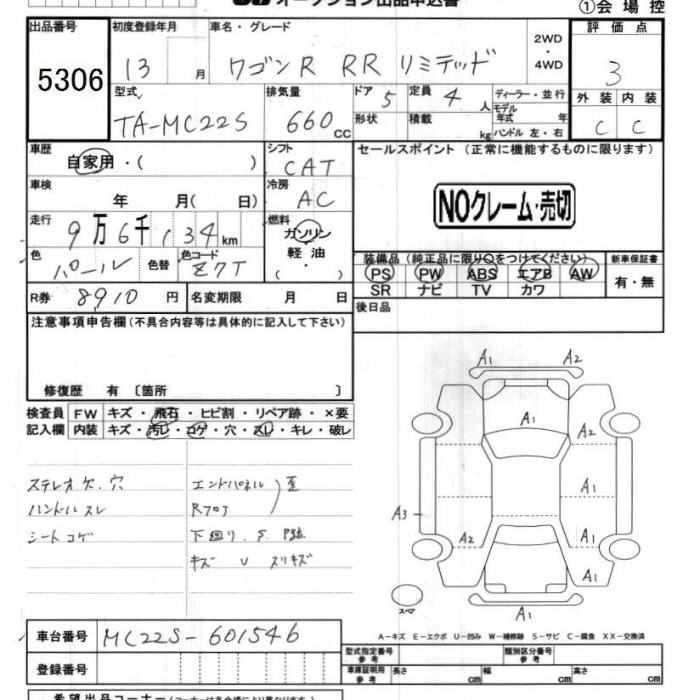 オークション出品申込書
①会場控
出品番号 初度登録年月 車名・グレード 2WD・4WD 評価点
5306 13 月 ワゴンR RR リミテッド 3
型式 排気量 ドア 5 定員 4 人 ディーラー・並行 外装 内装
TA-MC22S 660cc 形状 積載 kg モデル年式 年 C C
ハンドル 左・右
車歴 シフト セールスポイント (正常に機能するものに限ります)
自家用・( ) CAT
車検 冷房
年 月( 日) AC NOクレーム・売切
走行 燃料
9万6千134km ガソリン
色 色替 色コード 軽油 装備品(純正品に限り○をつけてください) 新車保証書
パール Z7T ( ・ ) PS PW ABS エアB AW 有・無
SR ナビ TV カワ
R券 8910 円 名変期限 月 日 後日品
注意事項申告欄(不具合内容等は具体的に記入して下さい)
修復歴 有 〔箇所 〕
検査員 FW キズ・飛石・ヒビ割・リペア跡・×要
記入欄 内装 キズ・汚レ・コゲ・穴・スレ・キレ・破レ
ステレオ欠.穴 エンドパネル 歪
ハンドルスレ Rフロア
シートコゲ 下廻り.S.
キズ U スリキズ
A1 A2
A1
A2
A1
A3
A2 A1
A1
スペア A1
A-キズ E-エクボ U-凹み W-補修跡 S-サビ C-腐食 XX-交換済
車台番号 MC22S-601546
型式指定番号 参考 類別区分番号 参考
登録番号 車庫証明用 参考 長さ cm 幅 cm 高さ cm
希望出品コーナー